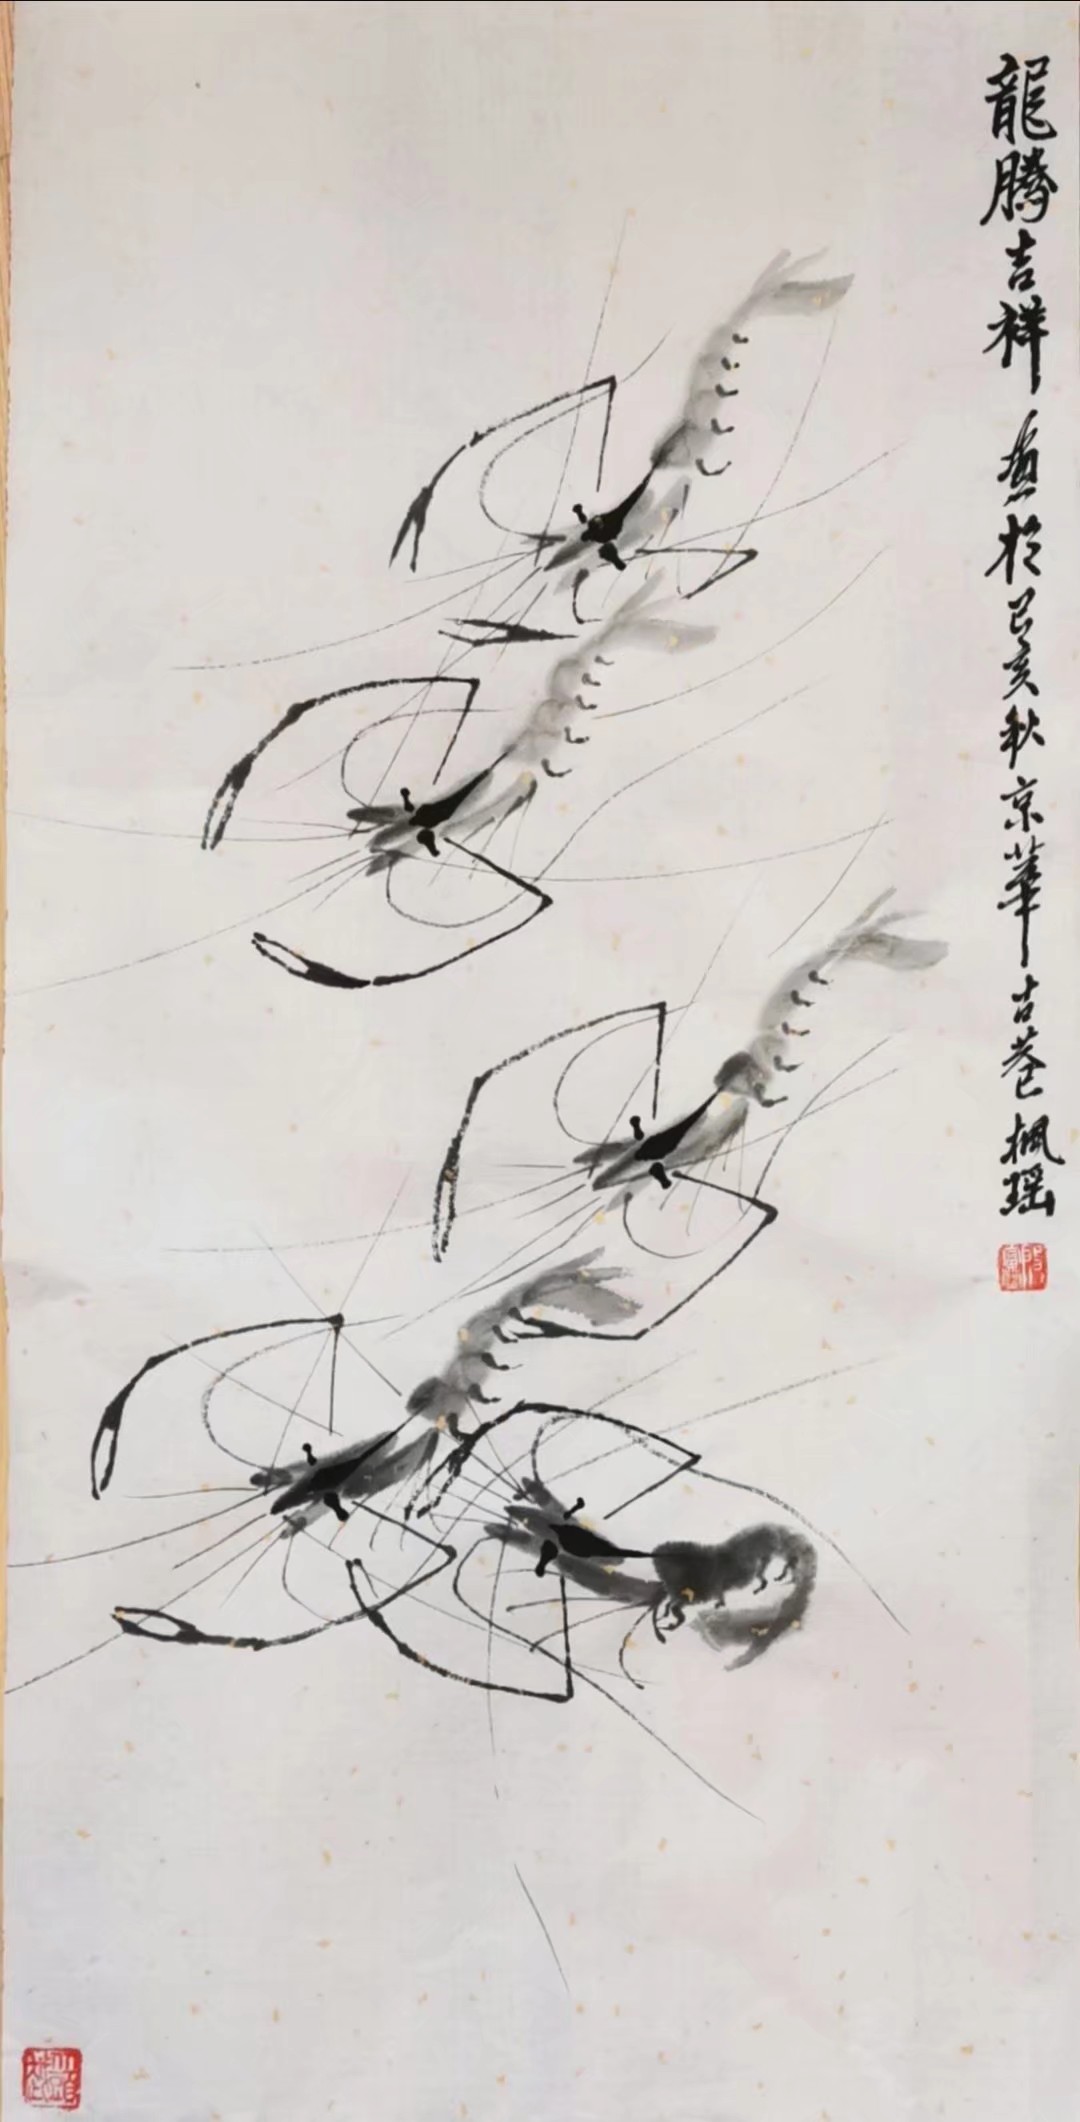 龍腾吉祥 画於己亥秋京華古巷枫瑶